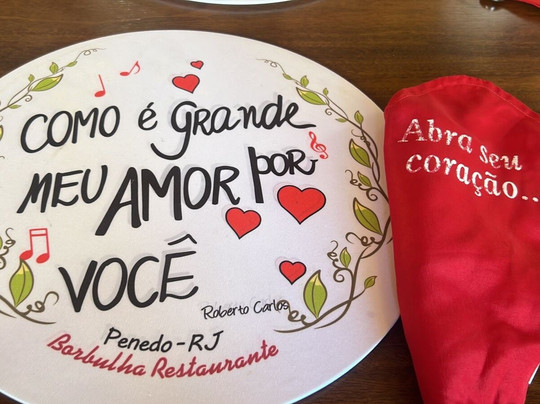 COMO é GRANDE
MEU AMOR POR
VOCÊ
Roberto Carlos
Penedo-RJ
Borbulha Restaurante
Abra seu
coração...